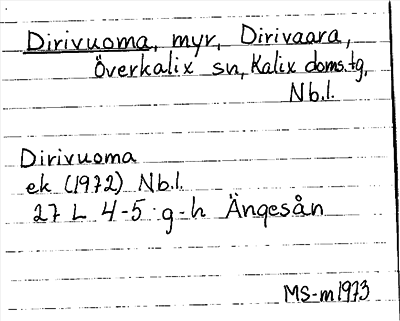 Dirivuoma, myr, Dirivaara,
Överkalix sn, Kalix doms.tg,
Nb.l.
Dirivuoma
ek (1972) Nb.l.
27 L 4-5 g-h Ängesån
MS-m 1973